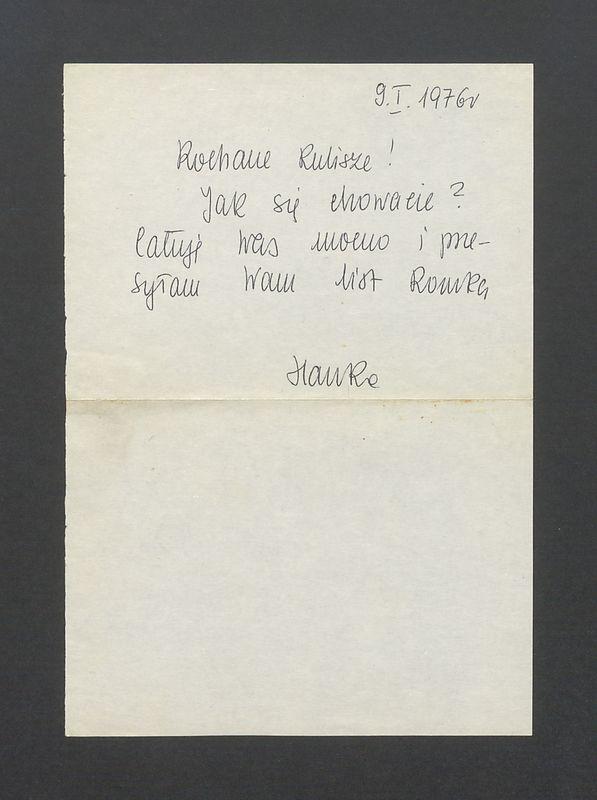 9.I.1976r
Kochane Kulisze!
Jak się chowacie?
Całuję Was mocno i prze-
syłam Wam list Romka
Hanka